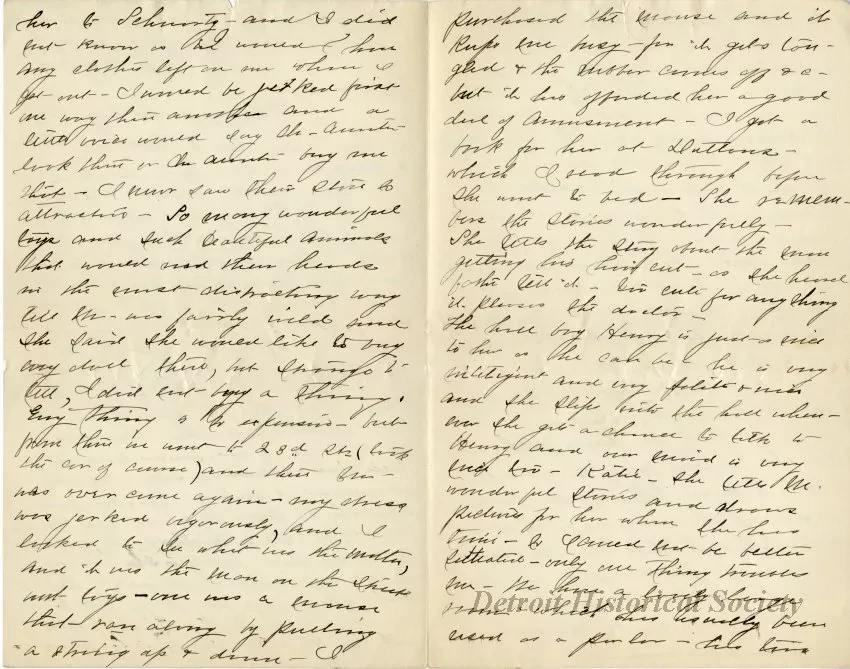 her to Schwartz - and I did
not know as she would have
any clothes left on me when I
got out - I would be jerked first
one way then another and a
little voice would say Oh - Auntie
look there or Oh Auntie buy me
that - I never saw their store so
attractive - So many wonderful
toys and such beautiful animals
that would nod their heads
in the most distracting way
till M- was fairly wild and
she said she would like to buy
every doll there, but strange to
tell, I did not buy a thing.
Every thing is so expensive - but
from there we went to 23d St. (took
the car of course) and there M-
was over come again - my dress
was jerked vigorously, and I
looked to see what was the matter,
and it was the man on the street
with toys - one was a mouse
that ran along by pulling
a string up & down - I
purchased the mouse and it
keeps me busy - for it gets tan-
gled & the rubber comes off &c -
but it has afforded her a good
deal of amusement - I got a
book for her at Duttons -
which I read through before
she went to bed - She remem-
bers the stories wonderfully -
She tells the story about the man
getting his hair cut - as she heard
tell it - too cute for any thing
it pleases the doctor -
The hall boy Henry is just as nice
to her as he can be - he is very
intelligent and very polite
and she slips into the hall when-
ever she gets a chance to talk to
Henry and our maid is very
nice too - Katie - she tells M.
wonderful stories and draws
pictures for her when she has
time - So I could not be better
situated - only one thing troubles
me - We have a lovely
room - which has usually been
used as a parlor - has two
Detroit Historical Society